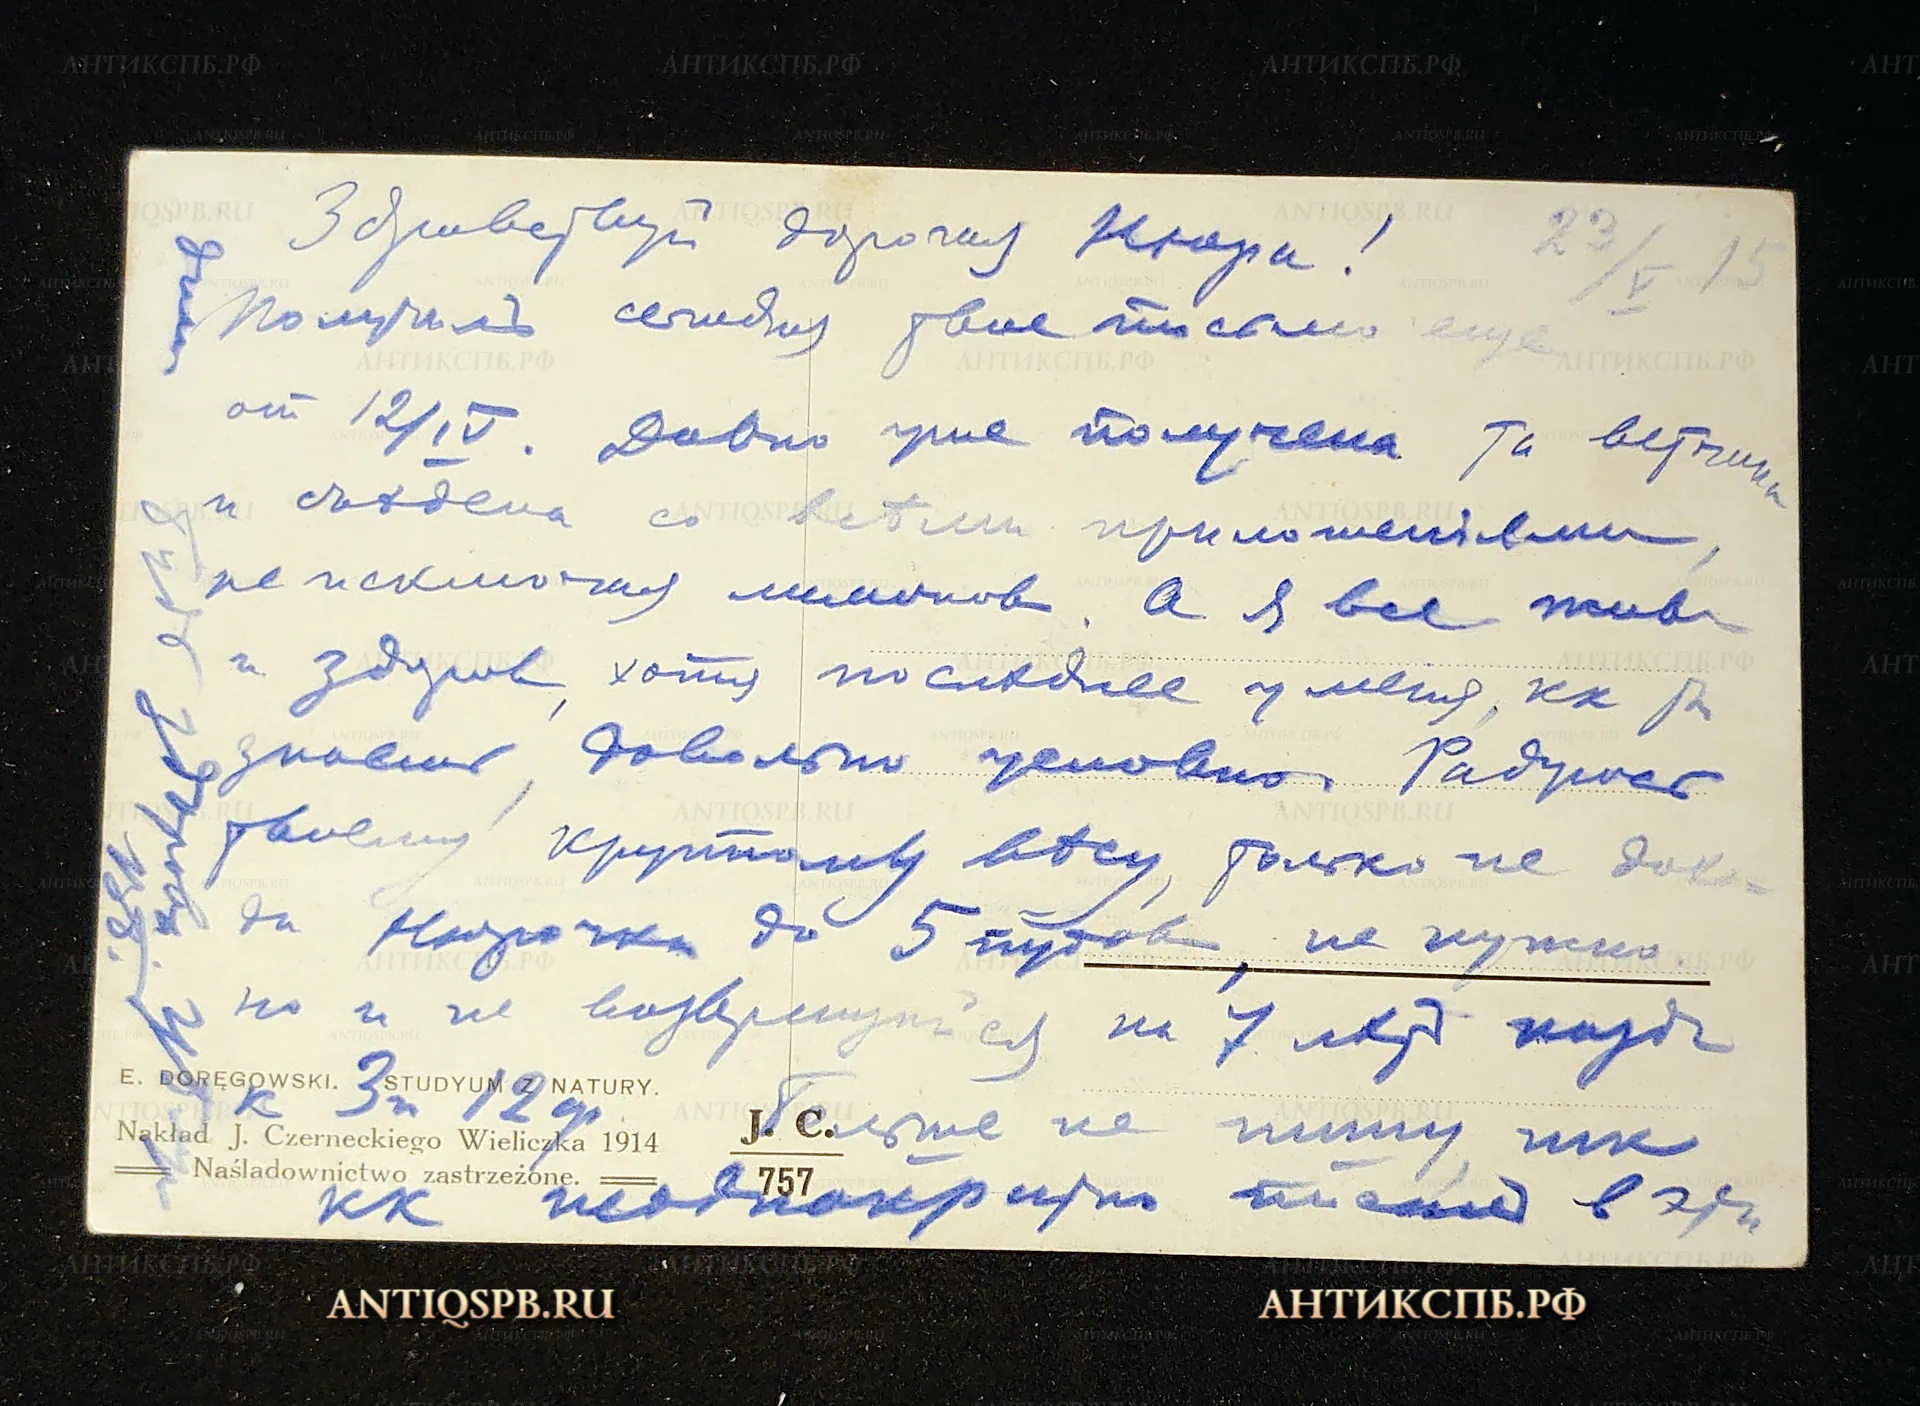 23/V 15
Здравствуй дорогая Нюра!
Получилъ сегодня твое письмо еще
от 12/IV. Давно уже получена та ветчина
и съѣдена со всѣми приложеніями,
не исключая лимонов. А я все жив
и здоров, хотя последнее у меня, кк ты
знаешь, довольно условно. Радуюсь
твоему крутому вѣсу, только не дохо-
ди Нюрочка до 5 пудов, не нужно.
но и не возвращайся на 7 лѣт назад
к 3 п 12 ф.
Больше не пишу, тк
кк неоднократно писал в эти
E. DORĘGOWSKI. STUDYUM Z NATURY.
Nakład J. Czerneckiego Wieliczka 1914
Naśladownictwo zastrzeżone.
J. C.
757
ANTIQSPB.RU
АНТИКСПБ.РФ